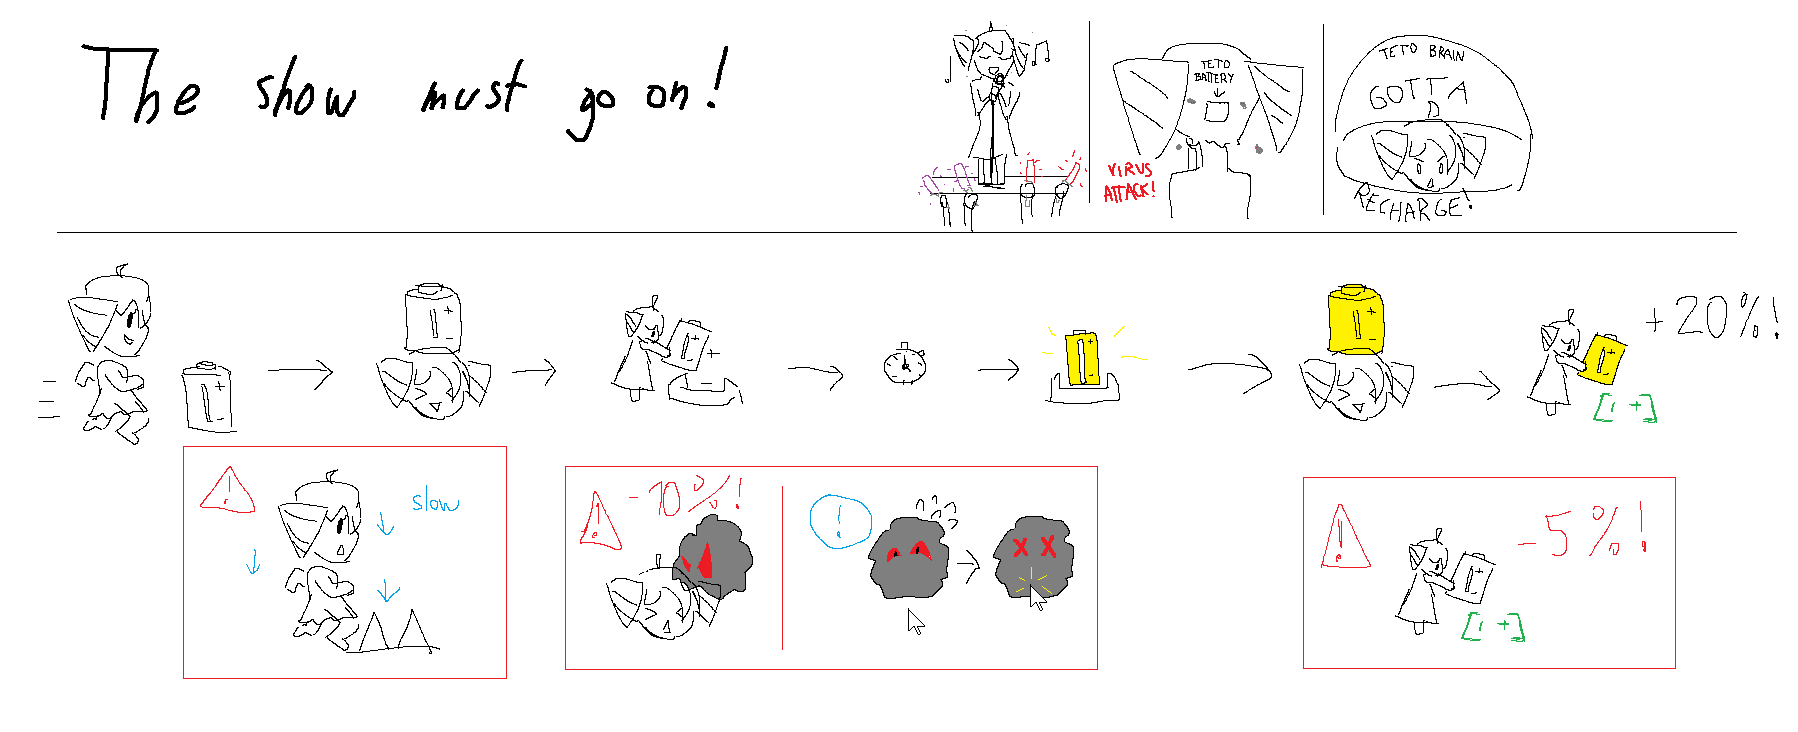 The show must go on!
TETO
BATTERY
VIRUS
ATTACK!
TETO BRAIN
GOTTA
RECHARGE!
+20%!
slow
-10%!
-5%!